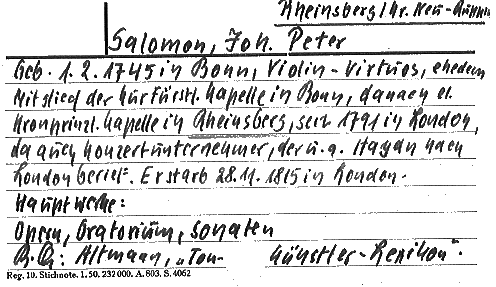 Rheinsberg / Kr. Neu-Ruppin
Salomon, Joh. Peter
Geb. 1. 2. 1745 in Bonn, Violin-Virtuos, ehedem
Mitglied der Kurfürstl. Kapelle in Bonn, danach d.
Kronprinzl. Kapelle in Rheinsberg, seit 1791 in London,
da auch Konzertunternehmer, der u. a. Haydn nach
London berief. Er starb 28.11. 1815 in London.
Hauptwerke:
Opern, Oratorium, Sonaten
B.Qu: Altmann, „Ton-künstler-Lexikon".
Reg. 10. Stichnote. 1. 50. 232000. A. 803. S. 4062